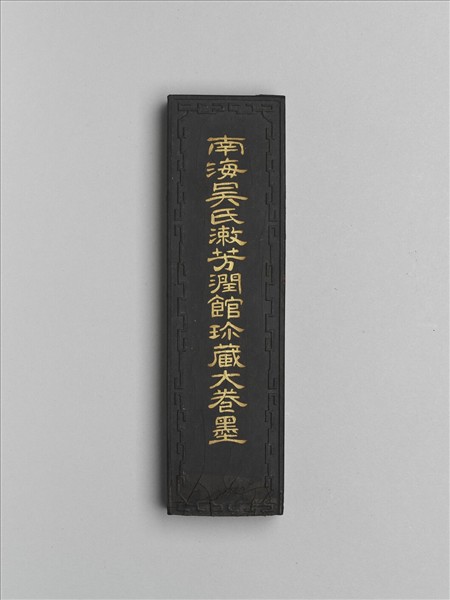 南海吴氏漱芳潤館珍藏大卷墨